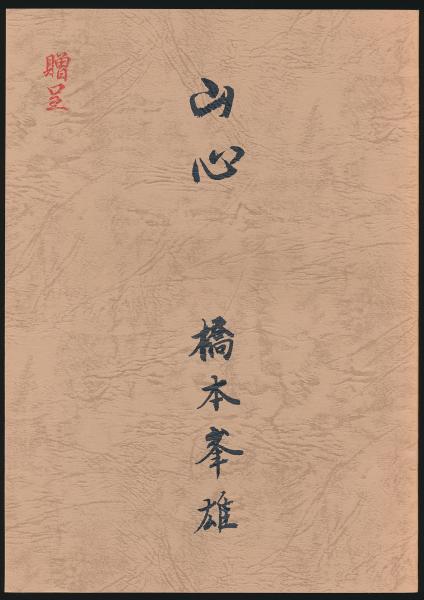 山心
橋本峯雄
贈呈